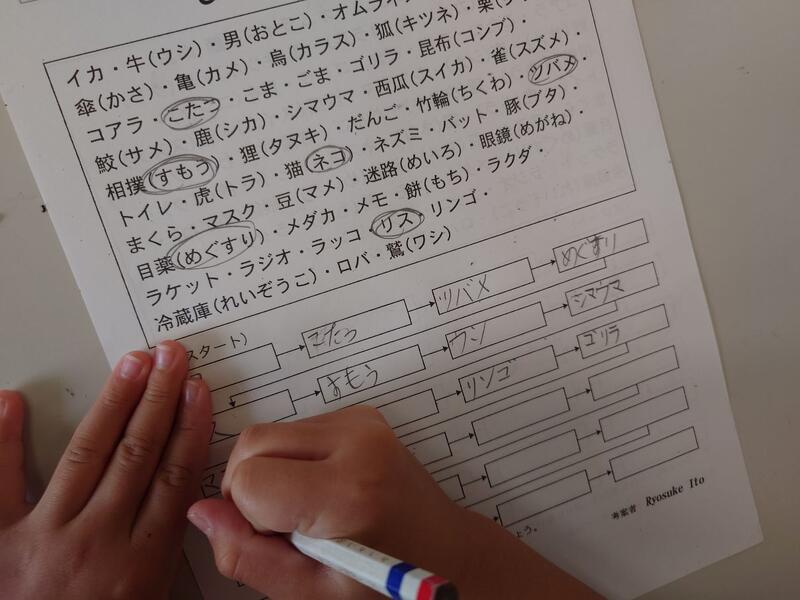 イカ・牛(ウシ)・男(おとこ)・オムライ
傘(かさ)・亀(カメ)・烏(カラス)・狐(キツネ)・栗(ク
コアラ・こたつ・こま・ごま・ゴリラ・昆布(コンブ)・
鮫(サメ)・鹿(シカ)・シマウマ・西瓜(スイカ)・雀(スズメ)・
相撲(すもう)・狸(タヌキ)・だんご・竹輪(ちくわ)・ツバメ・
トイレ・虎(トラ)・猫(ネコ)・ネズミ・バット・豚(ブタ)・
まくら・マスク・豆(マメ)・迷路(めいろ)・眼鏡(めがね)・
目薬(めぐすり)・メダカ・メモ・餅(もち)・ラクダ・
ラケット・ラジオ・ラッコ・リス・リンゴ・
冷蔵庫(れいぞうこ)・ロバ・鷲(ワシ)
スタート)
こたつ
ツバメ
めぐすり
すもう
ウシ
シマウマ
リンゴ
ゴリラ
よう。
考案者 Ryosuke Ito